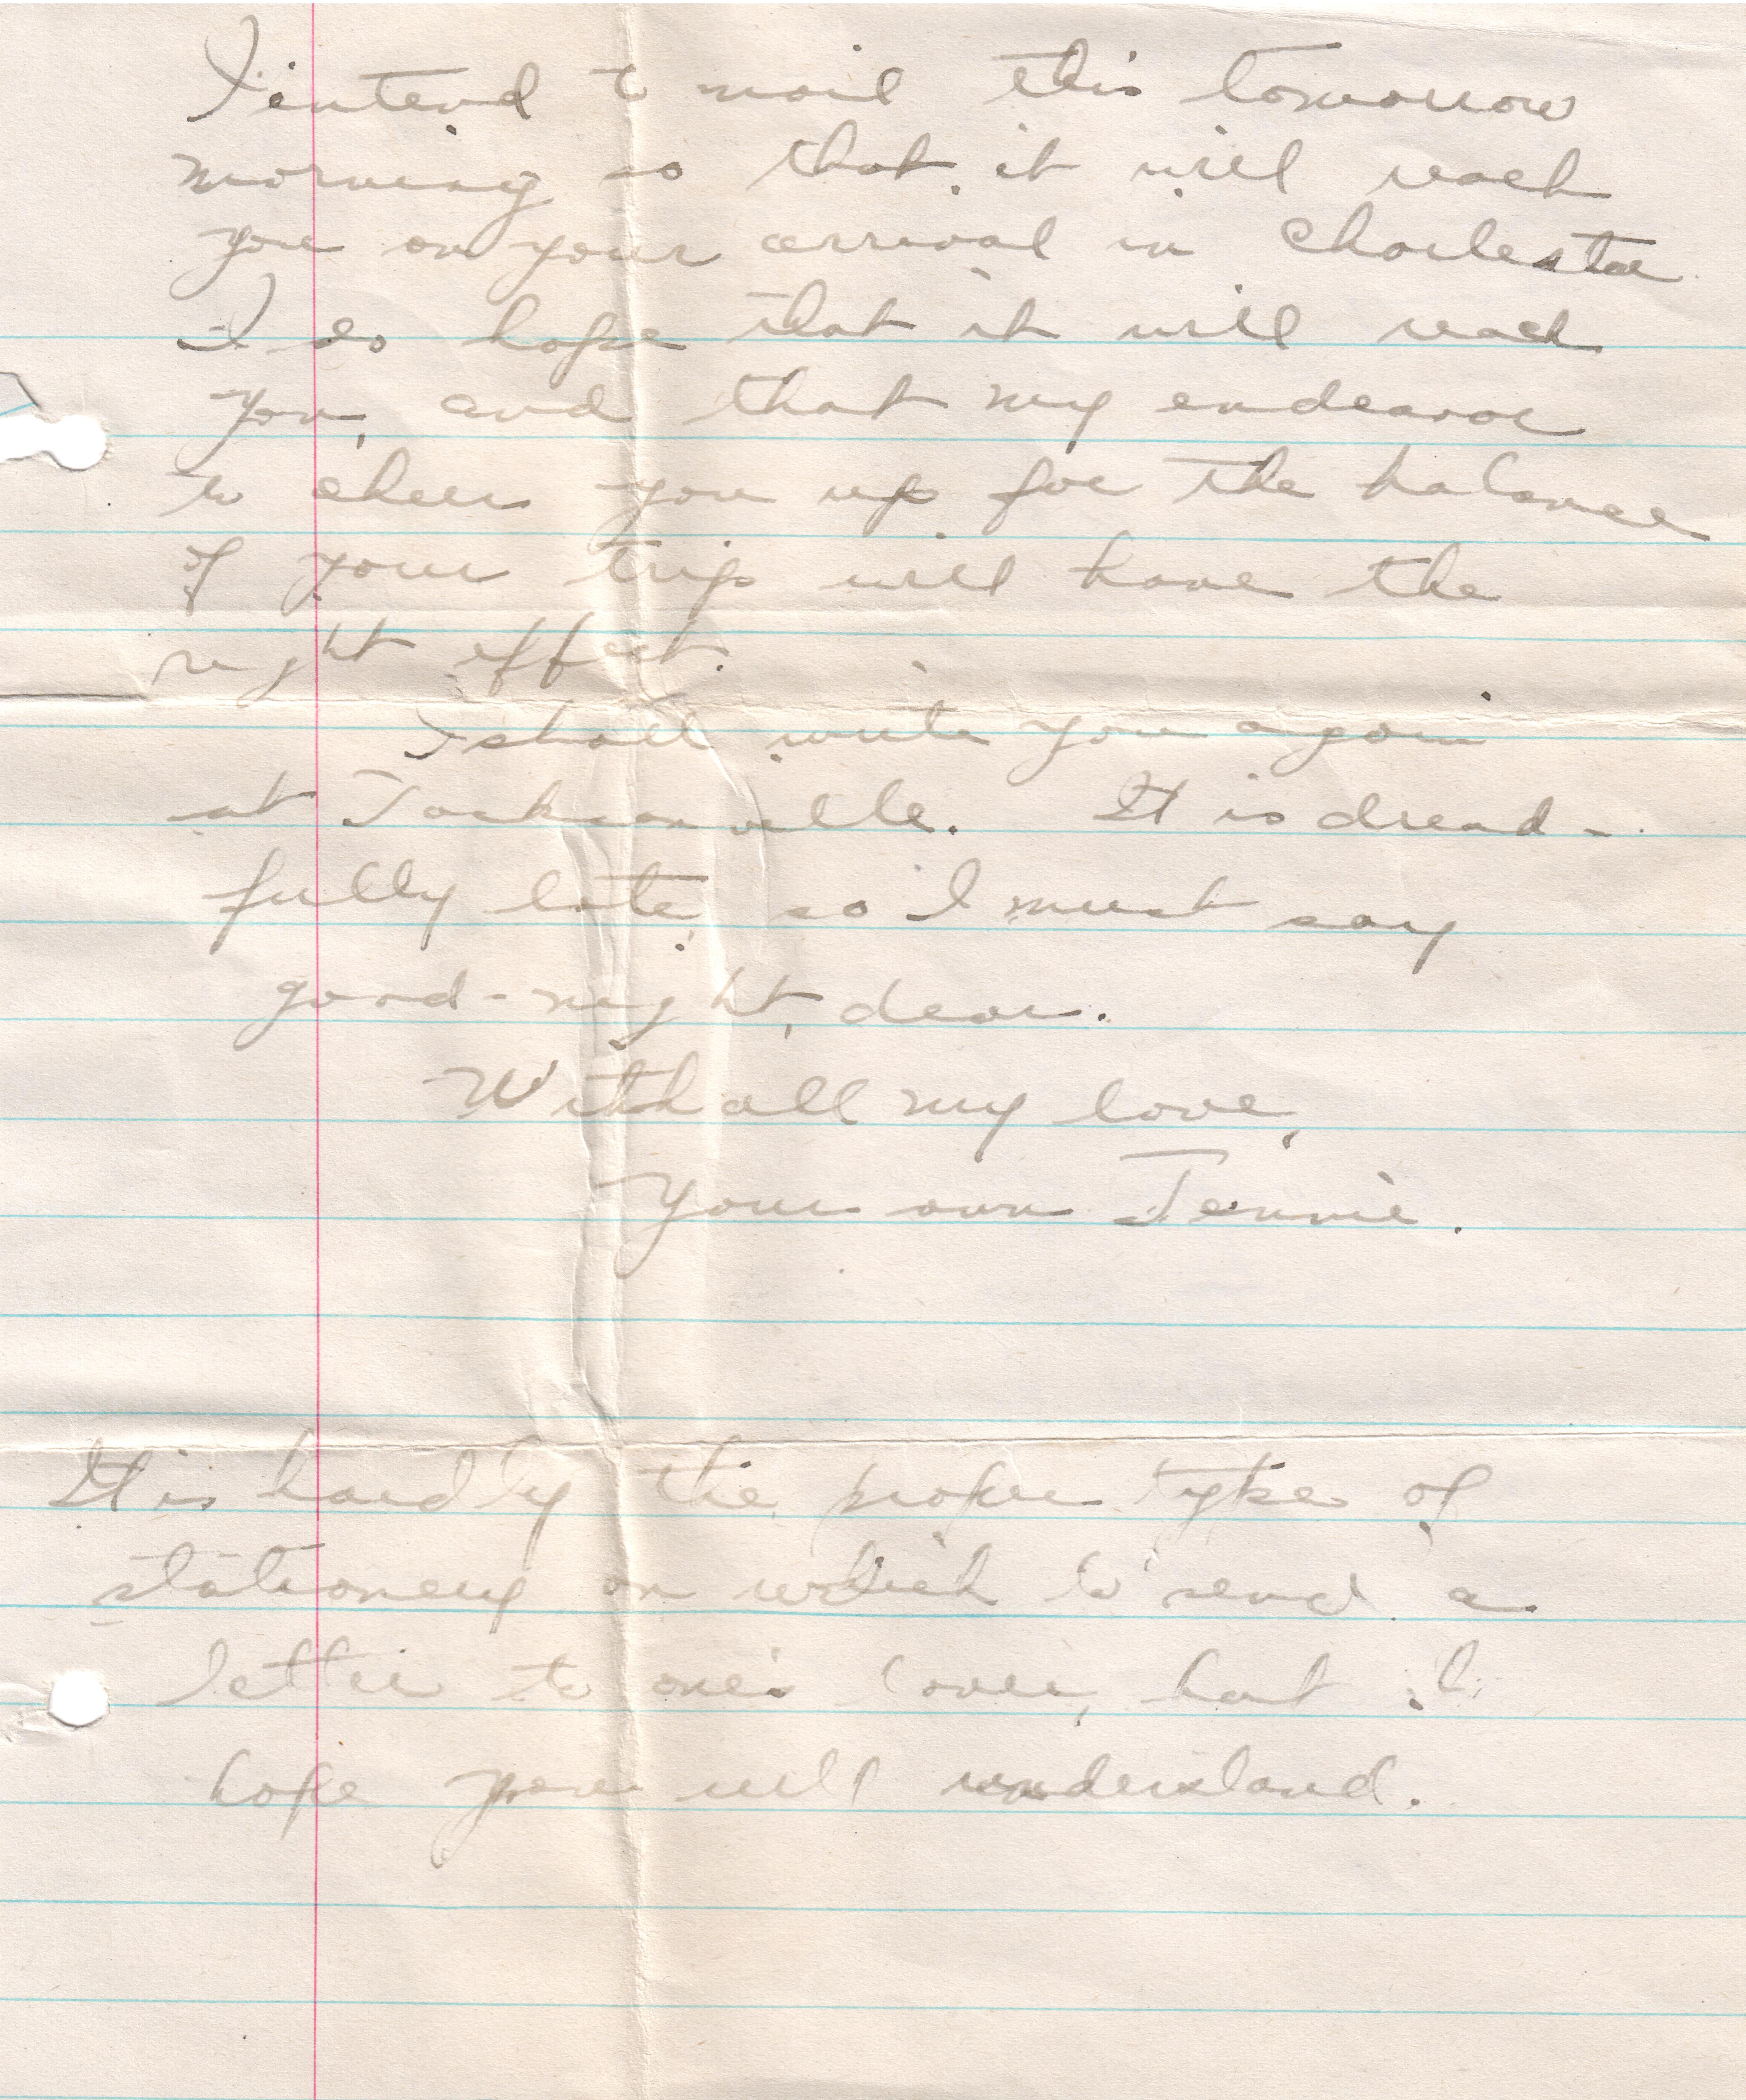 I intend to mail this tomorrow
morning so that it will reach
you on your arrival in Charleston
I do hope that it will reach
you, and that my endeavor
to cheer you up for the balance
of your trip will have the
right effect.
I shall write you again
at Jacksonville. It is dread-
fully late, so I must say
good-night, dear.
With all my love,
Your own Jennie.
It is hardly the proper type of
stationery on which to send a
letter to one's lover, but I
hope you will understand.